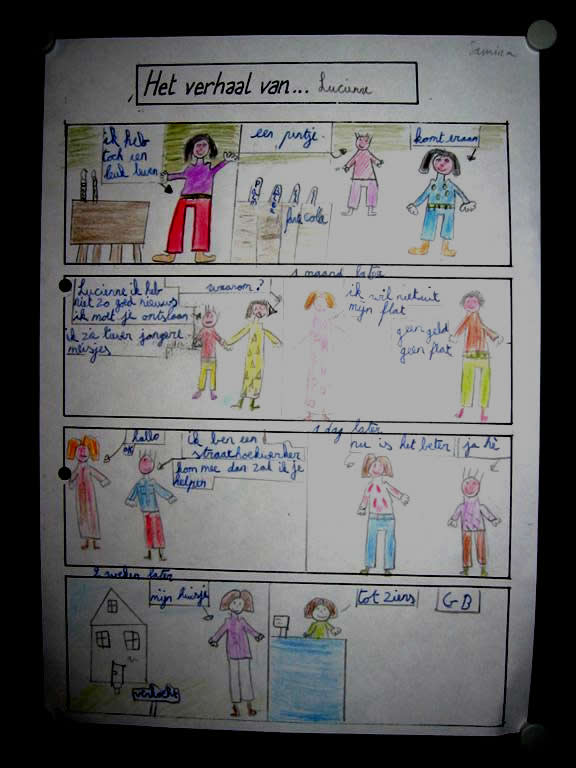 Samira
Het verhaal van... Lucienne
ik heb
toch een
leuk leven
een pintje
komt eraan
fata cola
1 maand later
Lucienne ik heb
niet zo goed nieuws
ik moet je ontslaan
ik zie liever jongere
meisjes
waarom?
ik wil niet uit
mijn flat
geen geld
geen flat
1 dag later
hallo
ok
ik ben een
straathoekwerker
kom mee dan zal ik je
helpen
nu is het beter
ja hé
2 weken later
mijn huisje
verkocht
tot ziens
GB